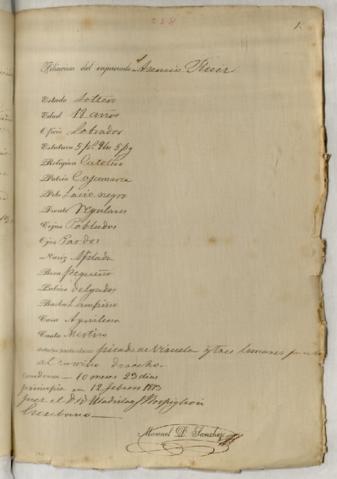 228
1.
Filiacion del enjuiciado Asencio
Estado Soltero
Edad 18 años
Oficio Labrador
Estatura 5 
Religion Catolico
Patria Cajamarca
Pelo Lacio negro
Frente Regular
Cejas Pobladas
Ojos Pardos
Nariz Afilada
Boca pequeña
Labios delgados
Barba Lampiño
Cara Aguileña
Casta Mestizo
picado de Viruela y tres lunares
al carrillo derecho
Condena — 10 meses 29 dias
principia en 12 febrero 1873
Juez el D. D.
Escribano —
Manuel D. Sanchez